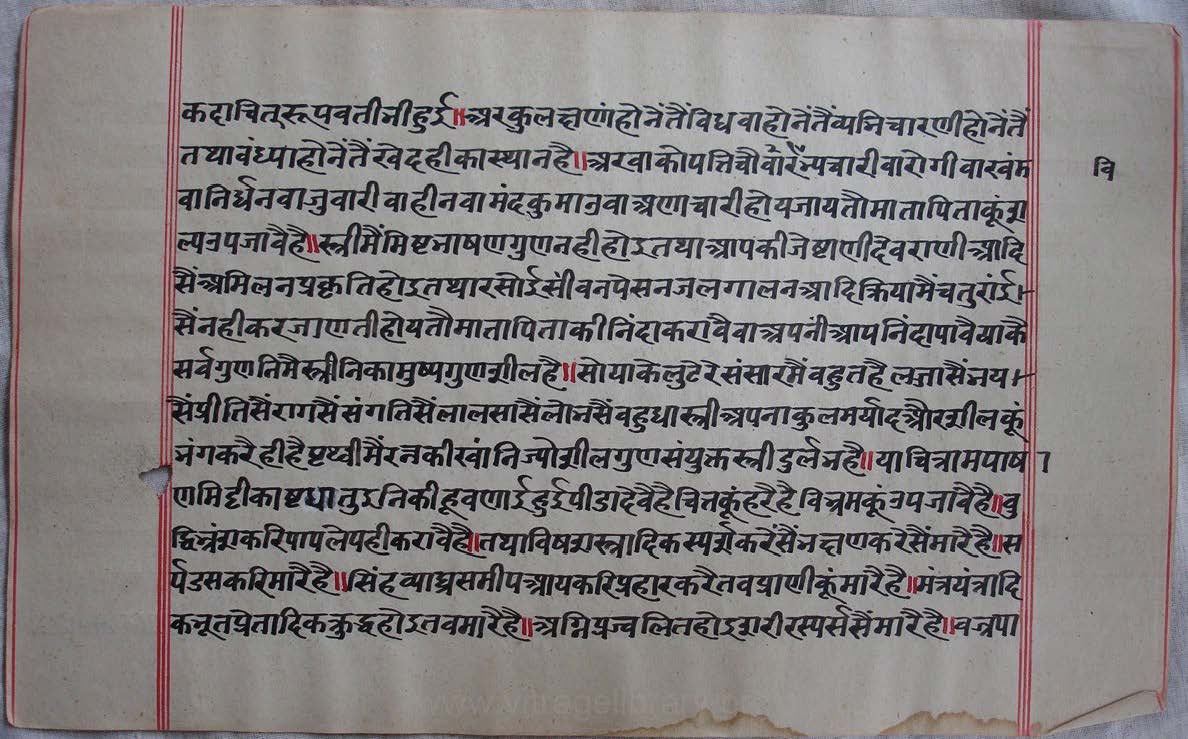 कदाचित्‌रूपवतीभीहुई॥अरकुलक्षणंहोनेंतैंविधवाहोनेंतैंव्यभिचारणीहोनेंतैं
तथावंध्याहोनेंतैंखेदहीकास्थानहै॥अरवाकोपतिचौ वारोगीवाखंज
वि
वानिर्धनवाजुवारीवाहीनवामंदकुमाउवाअणाचारीहोयजायतौमातापिताकूंश
ल्यउपजावैहै॥स्त्रीमैंमिष्टभाषणगुणनहीहोइतथाआपकीजेष्टाणीदेवराणीआदि
सैंअमिलनप्रकृतिहोइतथारसोईसींवनपेसनजलगालनआदिक्रियामैंचतुरांई
सैंनहीकरजाणतीहोयतौमातापिताकीनिंदाकरावैवाअपनीआपनिंदापावैयाकै
सर्वगुणनिमैस्त्रीनिकामुष्यगुणशीलहै॥सोयाकेलुटेरेसंसारमैंबहुतहैलज्जासैंभय
सैंप्रीतिसैंरागसैंसंगतिसैंलालसासैंलोभसैंबहुधास्त्रीअपनाकुलमर्यादऔरशीलकूं
भंगकरैहीहैपृथ्वीमैंरत्नकीखांनिज्योशीलगुणसंयुक्तस्त्रीदुर्लभहै॥याचित्रामपाष
णमिट्टीकाष्टधातुइनिकीहूवणाईहुईपीडादेवैहैचितकूंहरैहैविभ्रमकूंउपजावैहै॥बु
द्धिभ्रंशकरिपापलेपहीकरावैहै॥तथाविषशस्त्रादिकस्पर्शकरेंसैंभक्षणकरेसैंमारैहै॥स
र्पडसकरिमारैहै॥सिंहव्याघ्रसमीपआयकरिप्रहारकरैतवप्राणीकूंमारैहै॥मंत्रयंत्रादि
कभूतप्रेतादिकक्रुद्धहोइतवमारैहै॥अग्निप्रज्वलितहोइशरीरस्पर्ससैंमारैहै॥वज्रपा
www.vitragelibrary